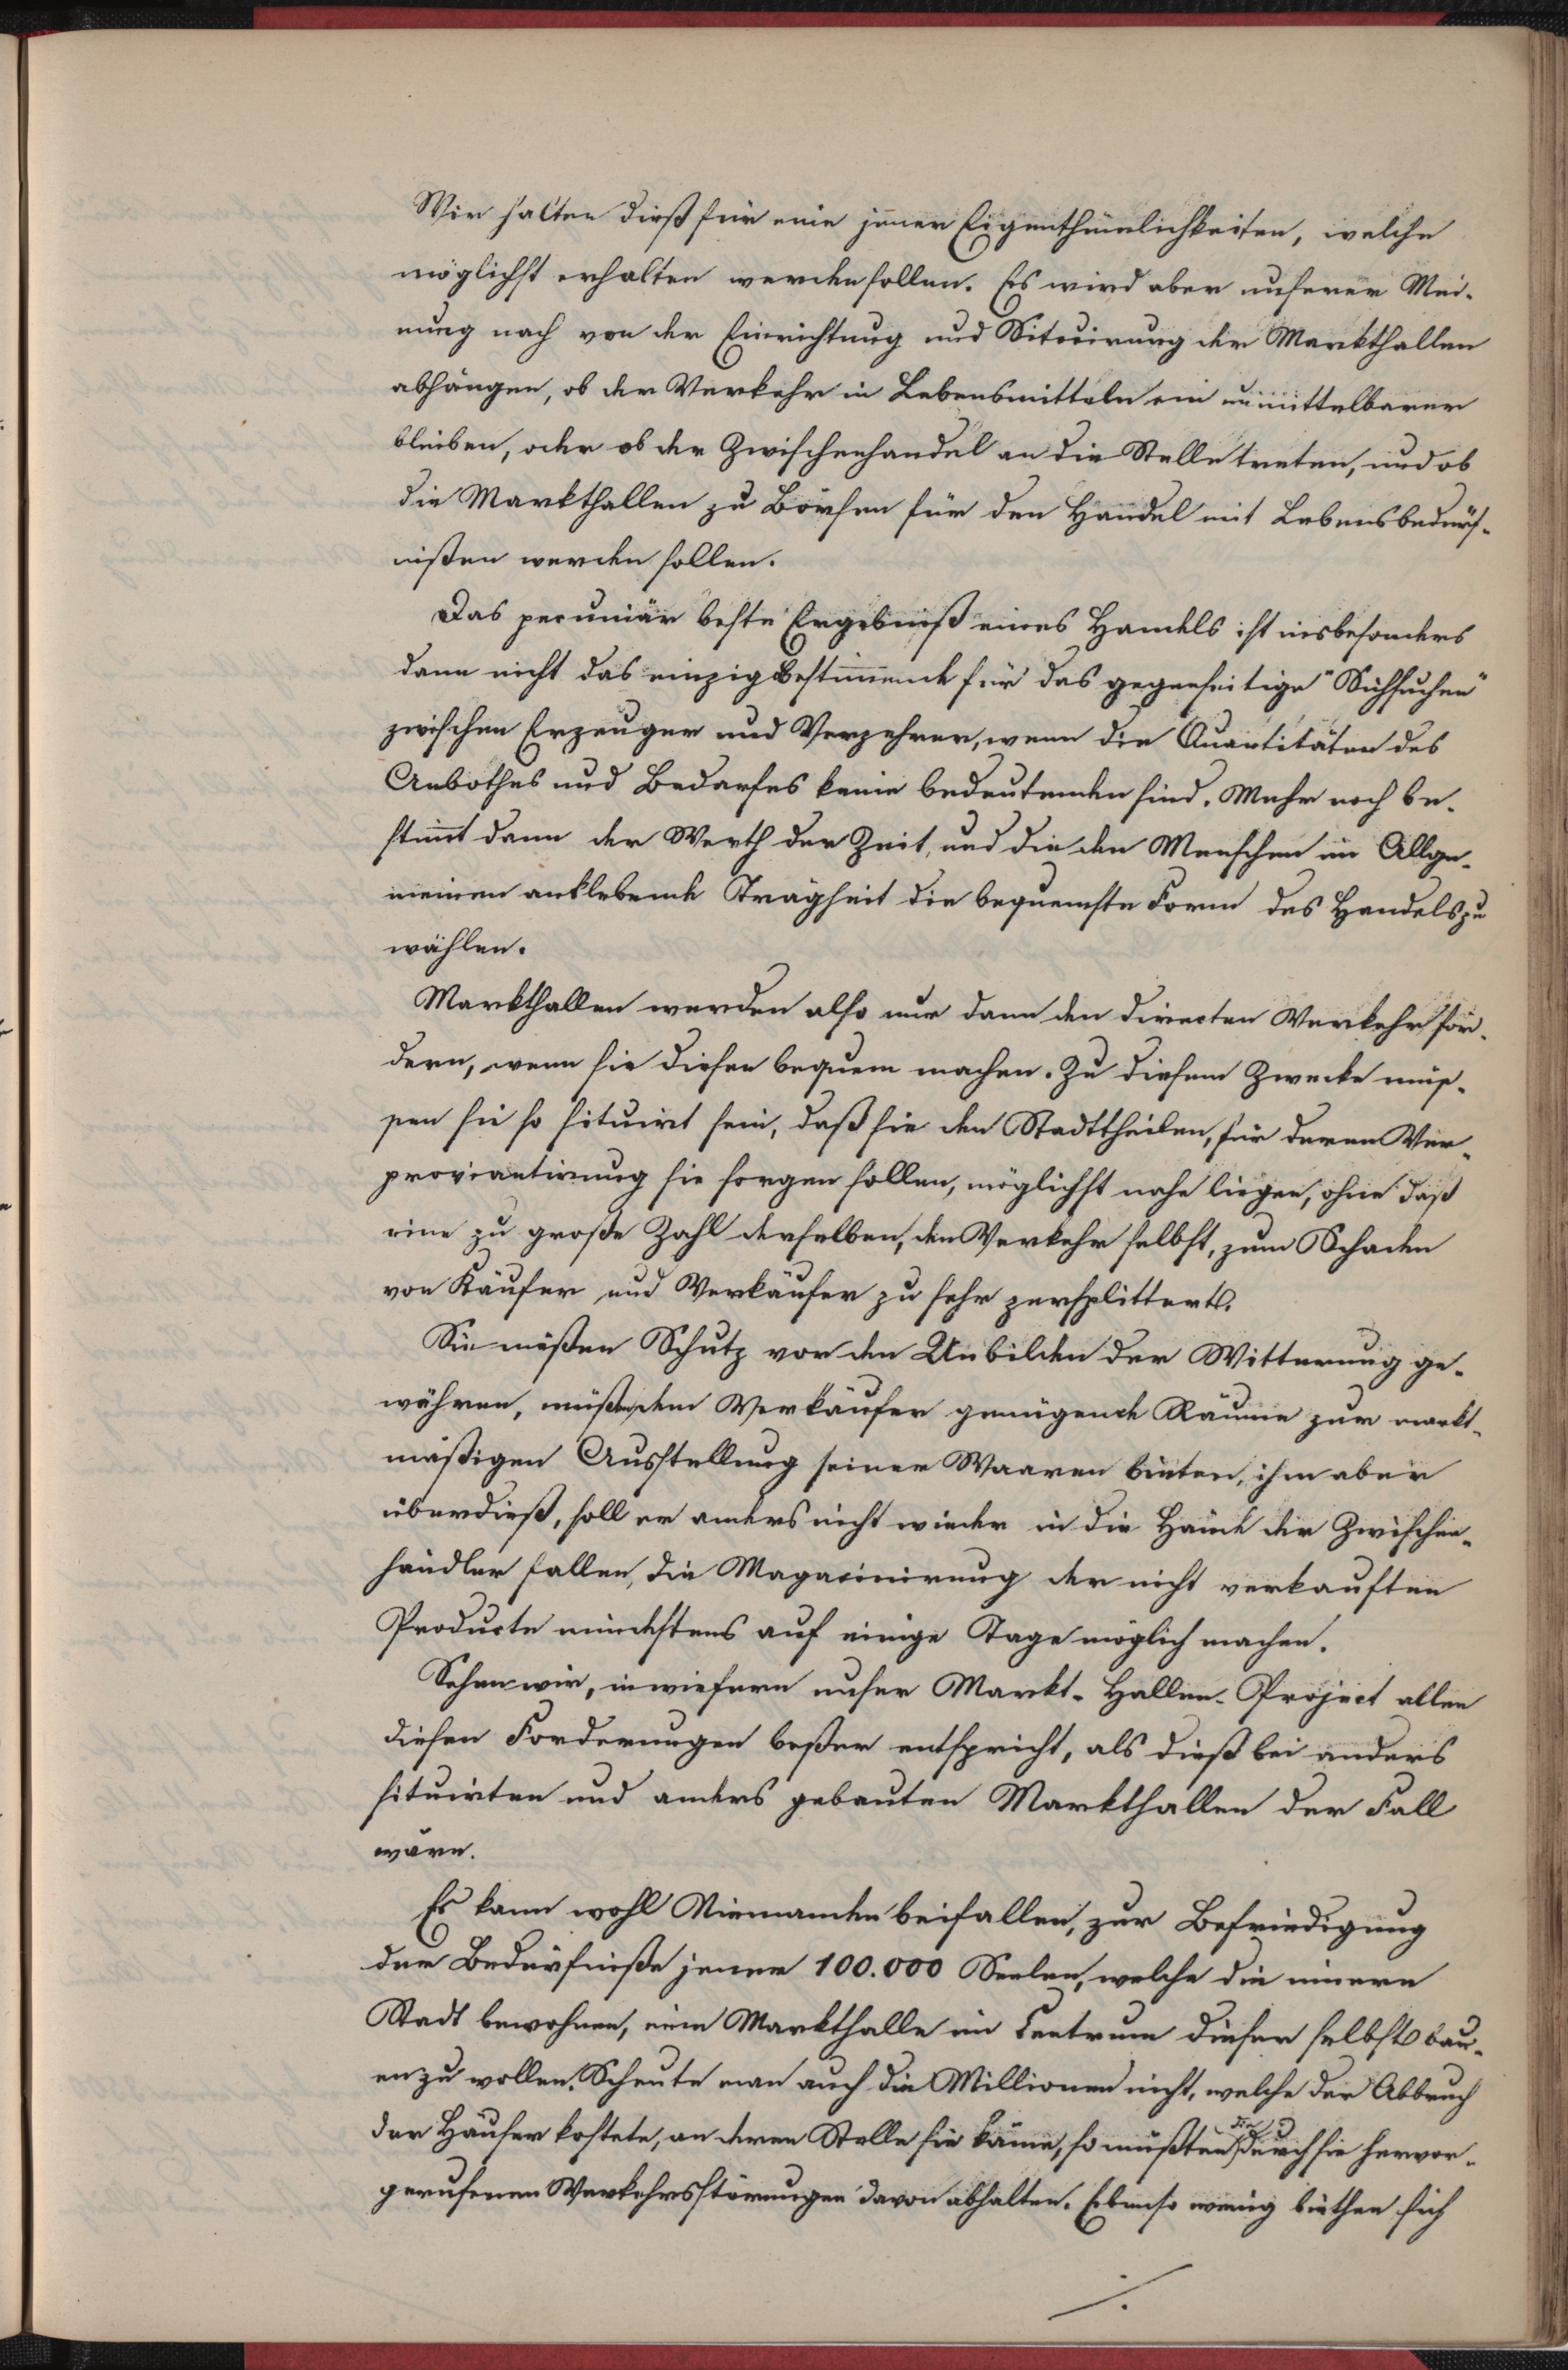 Wir halten dieß für eine jener Eigenthümlichkeiten, welche
möglichst erhalten werden sollen. Es wird aber unserer Mei-
nung nach von der Einrichtung und Situirung der Markthallen
abhängen, ob der Verkehr in Lebensmitteln ein unmittelbarer
bleiben, oder ob der Zwischenhandel an die Stelle treten, und ob
die Markthallen zu Börsen für den Handel mit Lebensbedürf-
nißen werden sollen.
Das pecuniär beste Ergebniß eines Handels ist insbesonders
dann nicht das einzig bestimmende für das gegenseitige "Sichsuchen"
zwischen Erzeuger und Verzehrer, wenn die Quantitäten des
Anbothes und Bedarfes keine bedeutenden sind. Mehr noch be-
stimmt dann der Werth der Zeit, und die den Menschen im Allge-
meinen anklebende Trägheit die bequemste Form des Handels zu
wählen.
Markthallen werden also nur dann den directen Verkehr för-
dern, wenn sie diesen bequem machen. Zu diesem Zwecke müs-
sen sie so situirt sein, daß sie den Stadttheilen, für deren Ver-
proviantirung sie sorgen sollen, möglichst nahe liegen, ohne daß
eine zu große Zahl derselben, den Verkehr selbst, zum Schaden
von Käufer und Verkäufer zu sehr zersplittert.
Sie müßen Schutz vor den Unbilden der Witterung ge-
währen, müßen dem Verkäufer genügende Räume zur markt-
mäßigen Ausstellung seiner Waaren bieten, ihm aber
überdieß, soll er anders nicht wieder in die Hände der Zwischen-
händler fallen, die Magazinirung der nicht verkauften
Producte mindestens auf einige Tage möglich machen.
Sehen wir, inwiefern unser Markt-Hallen-Project allen
diesen Forderungen beßer entspricht, als dieß bei anders
situirten und anders gebauten Markthallen der Fall
wäre.
Es kann wohl Niemanden beifallen, zur Befriedigung
der Bedürfniße jener 100.000 Seelen, welche die innere
Stadt bewohnen, eine Markthalle im Centrum dieser selbst bau-
en zu wollen. Scheute man auch die Millionen nicht, welche der Abbruch
der Häuser kostete, an deren Stelle sie käme, so müßten die durch sie hervor-
gerufenen Verkehrsstörungen davon abhalten. Ebenso wenig biethen sich
./.